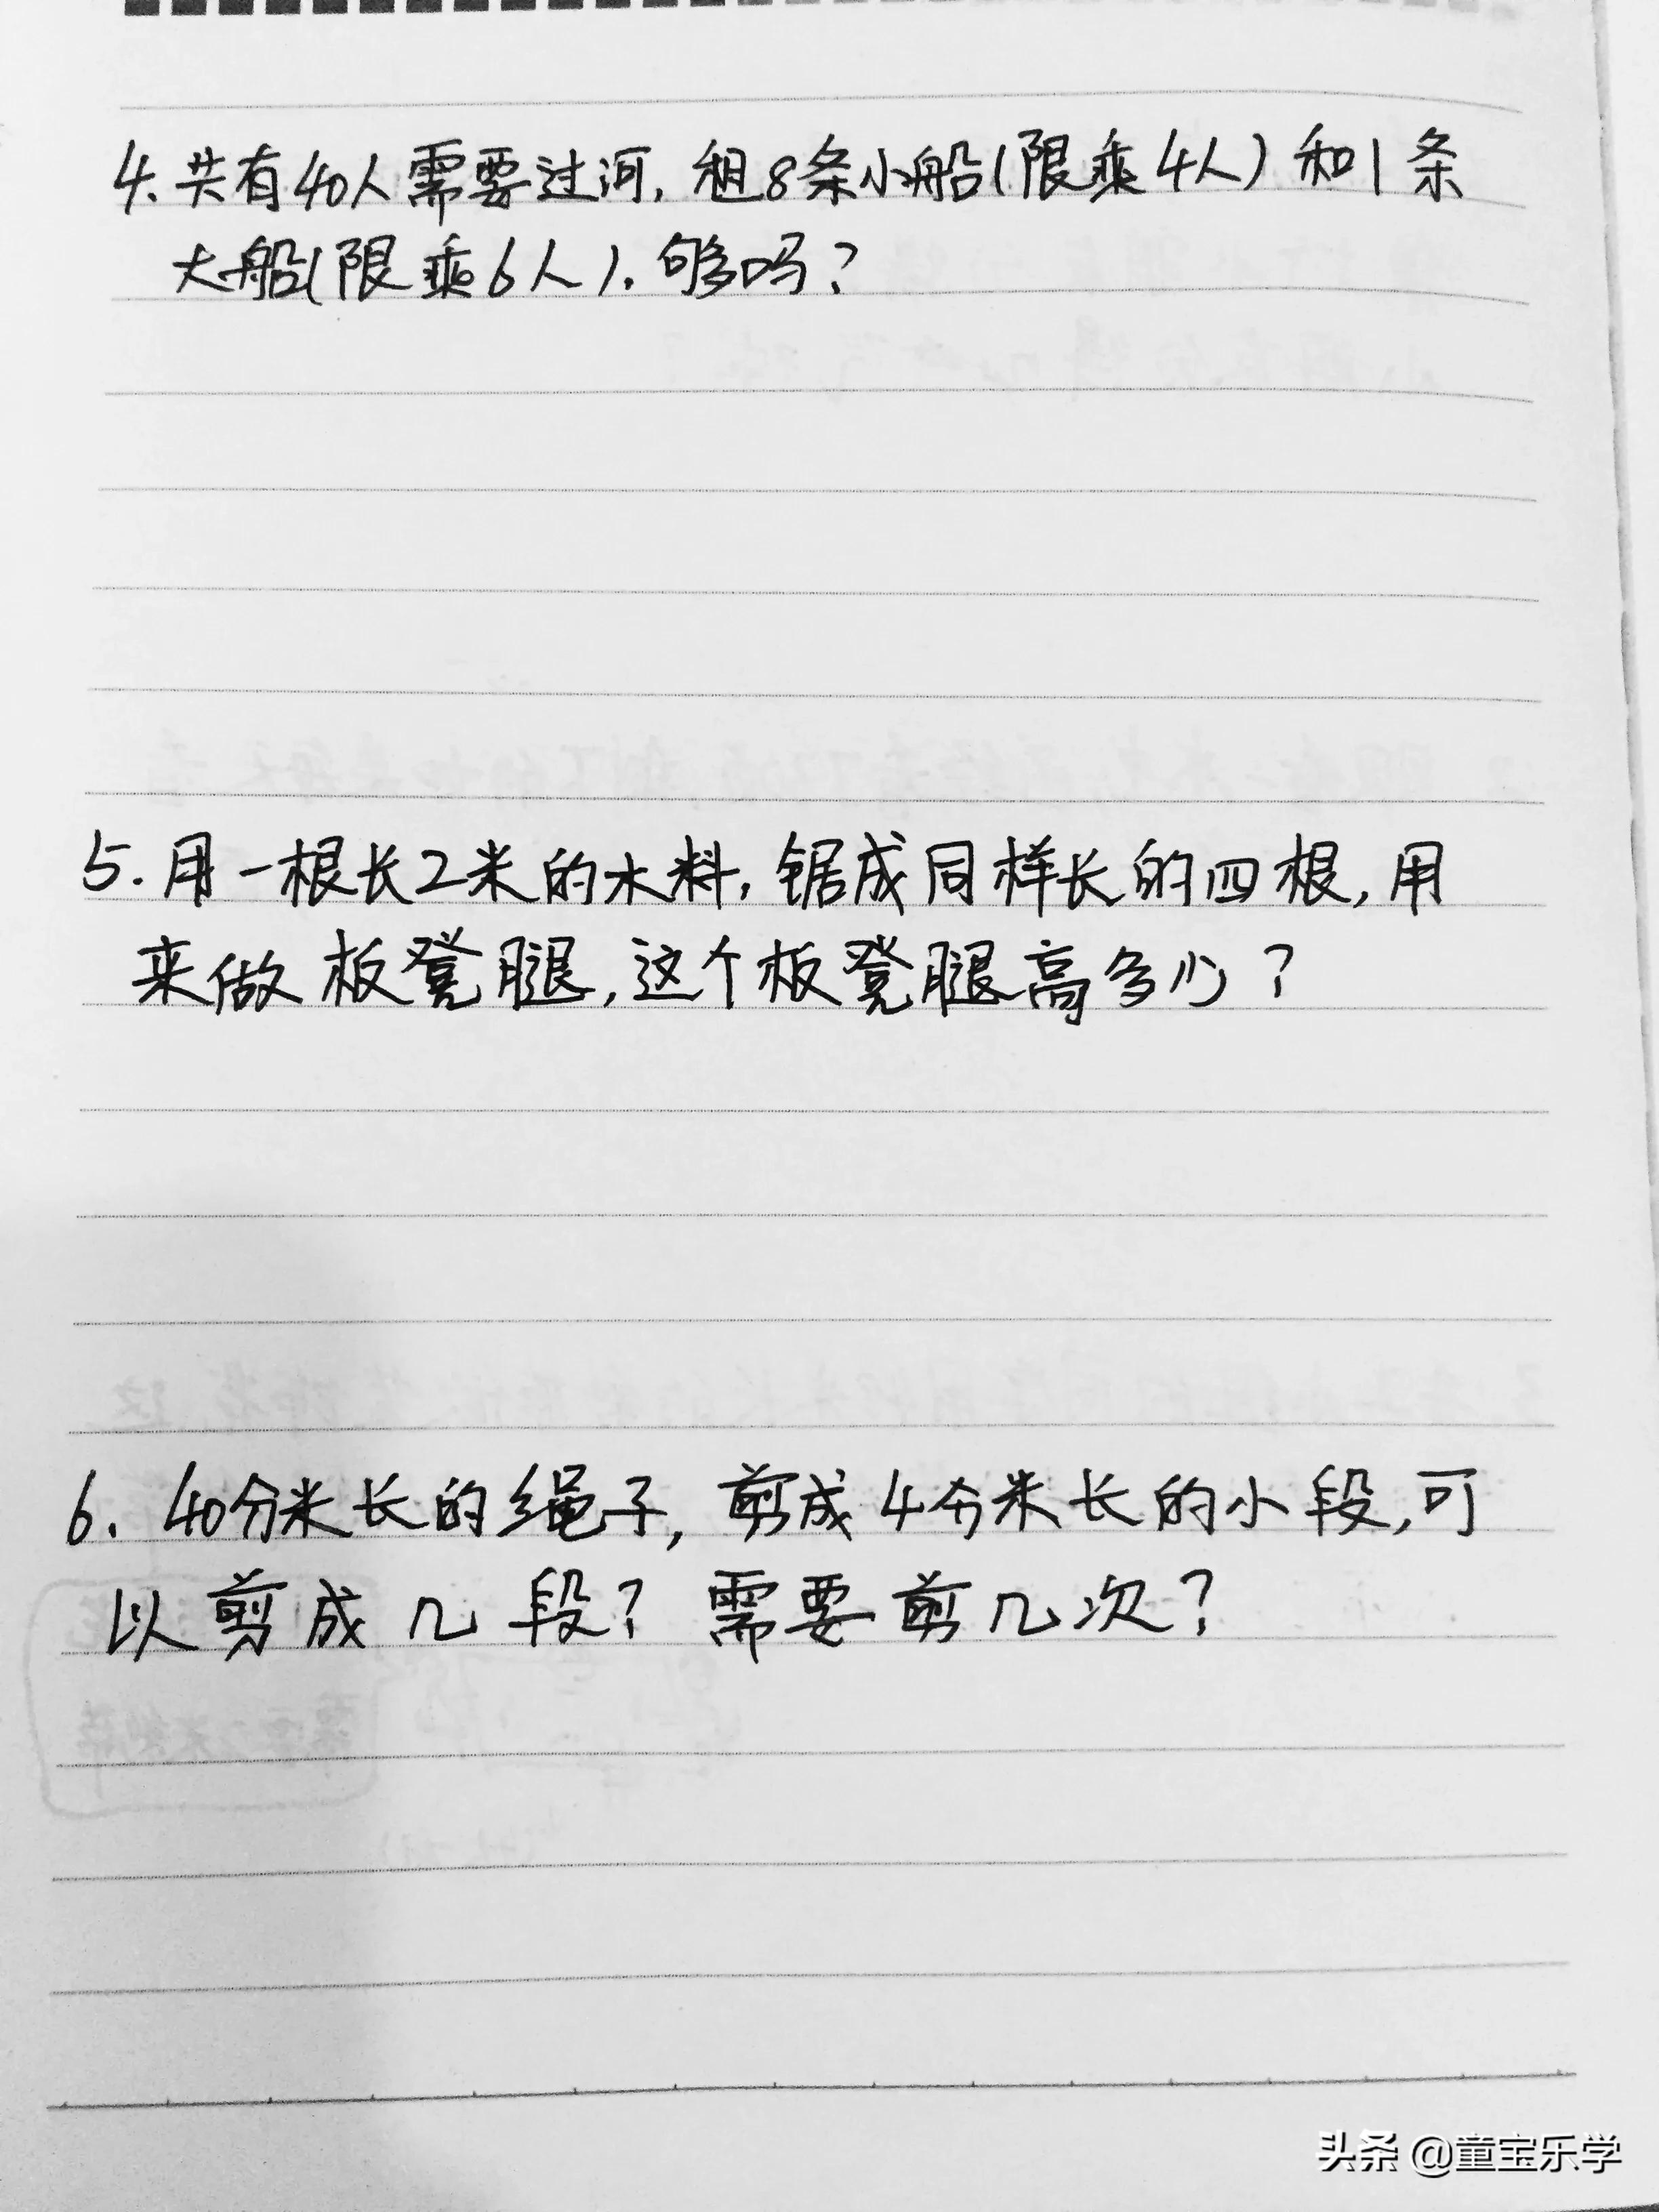 4. 共有40人需要过河, 租8条小船(限乘4人) 和1条
大船(限乘6人). 够吗?
5. 用一根长2米的木料, 锯成同样长的四根, 用
来做板凳腿, 这个板凳腿高多少?
6. 40分米长的绳子, 剪成4分米长的小段, 可
以剪成几段? 需要剪几次?
头条 @童宝乐学